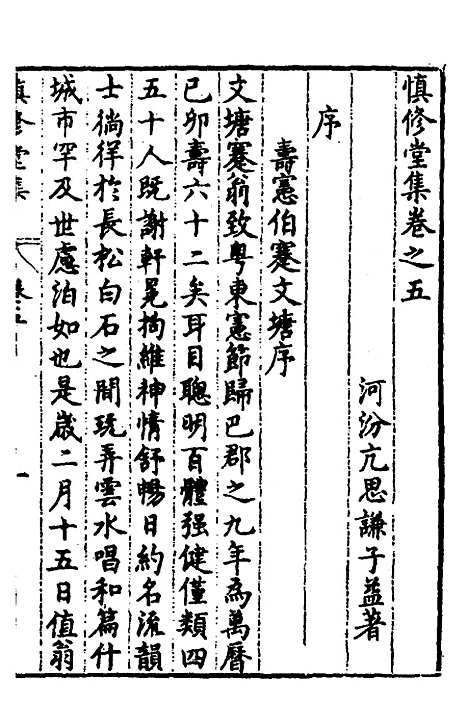 慎修堂集卷之五
河汾亢思謙子益著
序
壽憲伯蹇文塘序
文塘蹇翁致粤東憲節歸巴郡之九年為萬曆
己卯壽六十二矣耳目聰明百體强健僅類四
五十人既謝軒冕拘維神情舒暢日約名流韻
士徜徉於長松白石之間玩弄雲水唱和篇什
城市罕及世慮泊如也是歲二月十五日值翁
慎修堂集
卷五
一